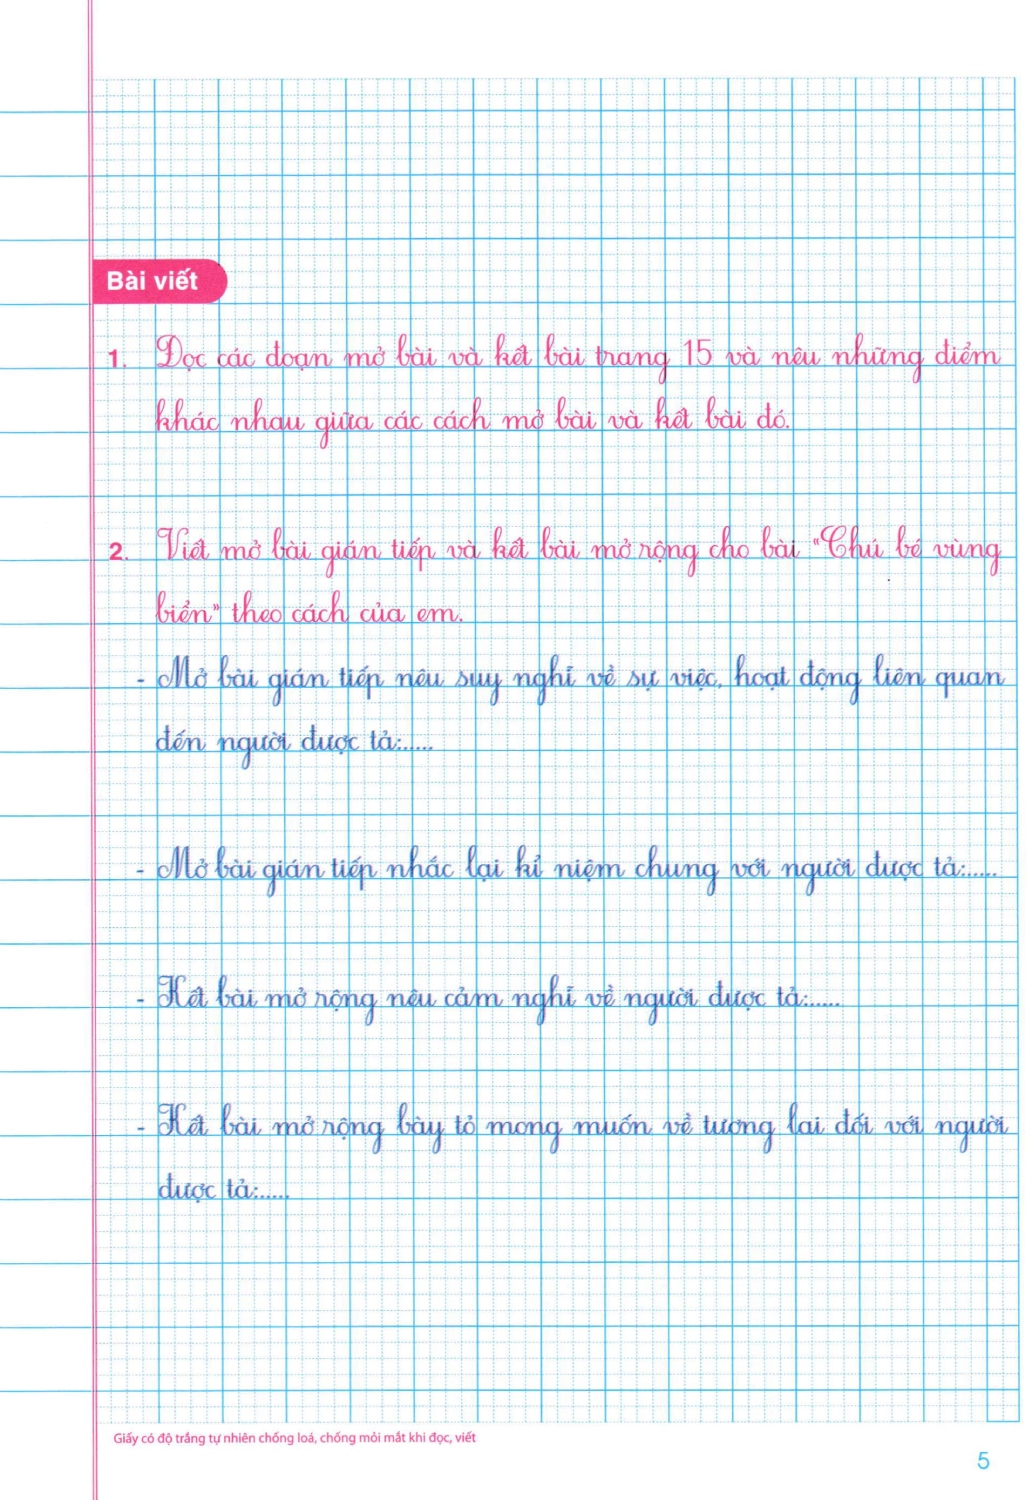 Bài viết
1. Đọc các đoạn mở bài và kết bài trang 15 và nêu những điểm
khác nhau giữa các cách mở bài và kết bài đó.
2. Viết mở bài gián tiếp và kết bài mở rộng cho bài "Chú bé vùng
biển" theo cách của em.
- Mở bài gián tiếp nêu suy nghĩ về sự việc, hoạt động liên quan
đến người được tả:.....
- Mở bài gián tiếp nhắc lại kỉ niệm chung với người được tả:.....
- Kết bài mở rộng nêu cảm nghĩ về người được tả:.....
- Kết bài mở rộng bày tỏ mong muốn về tương lai đối với người
được tả:.....
Giấy có độ trắng tự nhiên chống loá, chống mỏi mắt khi đọc, viết
5